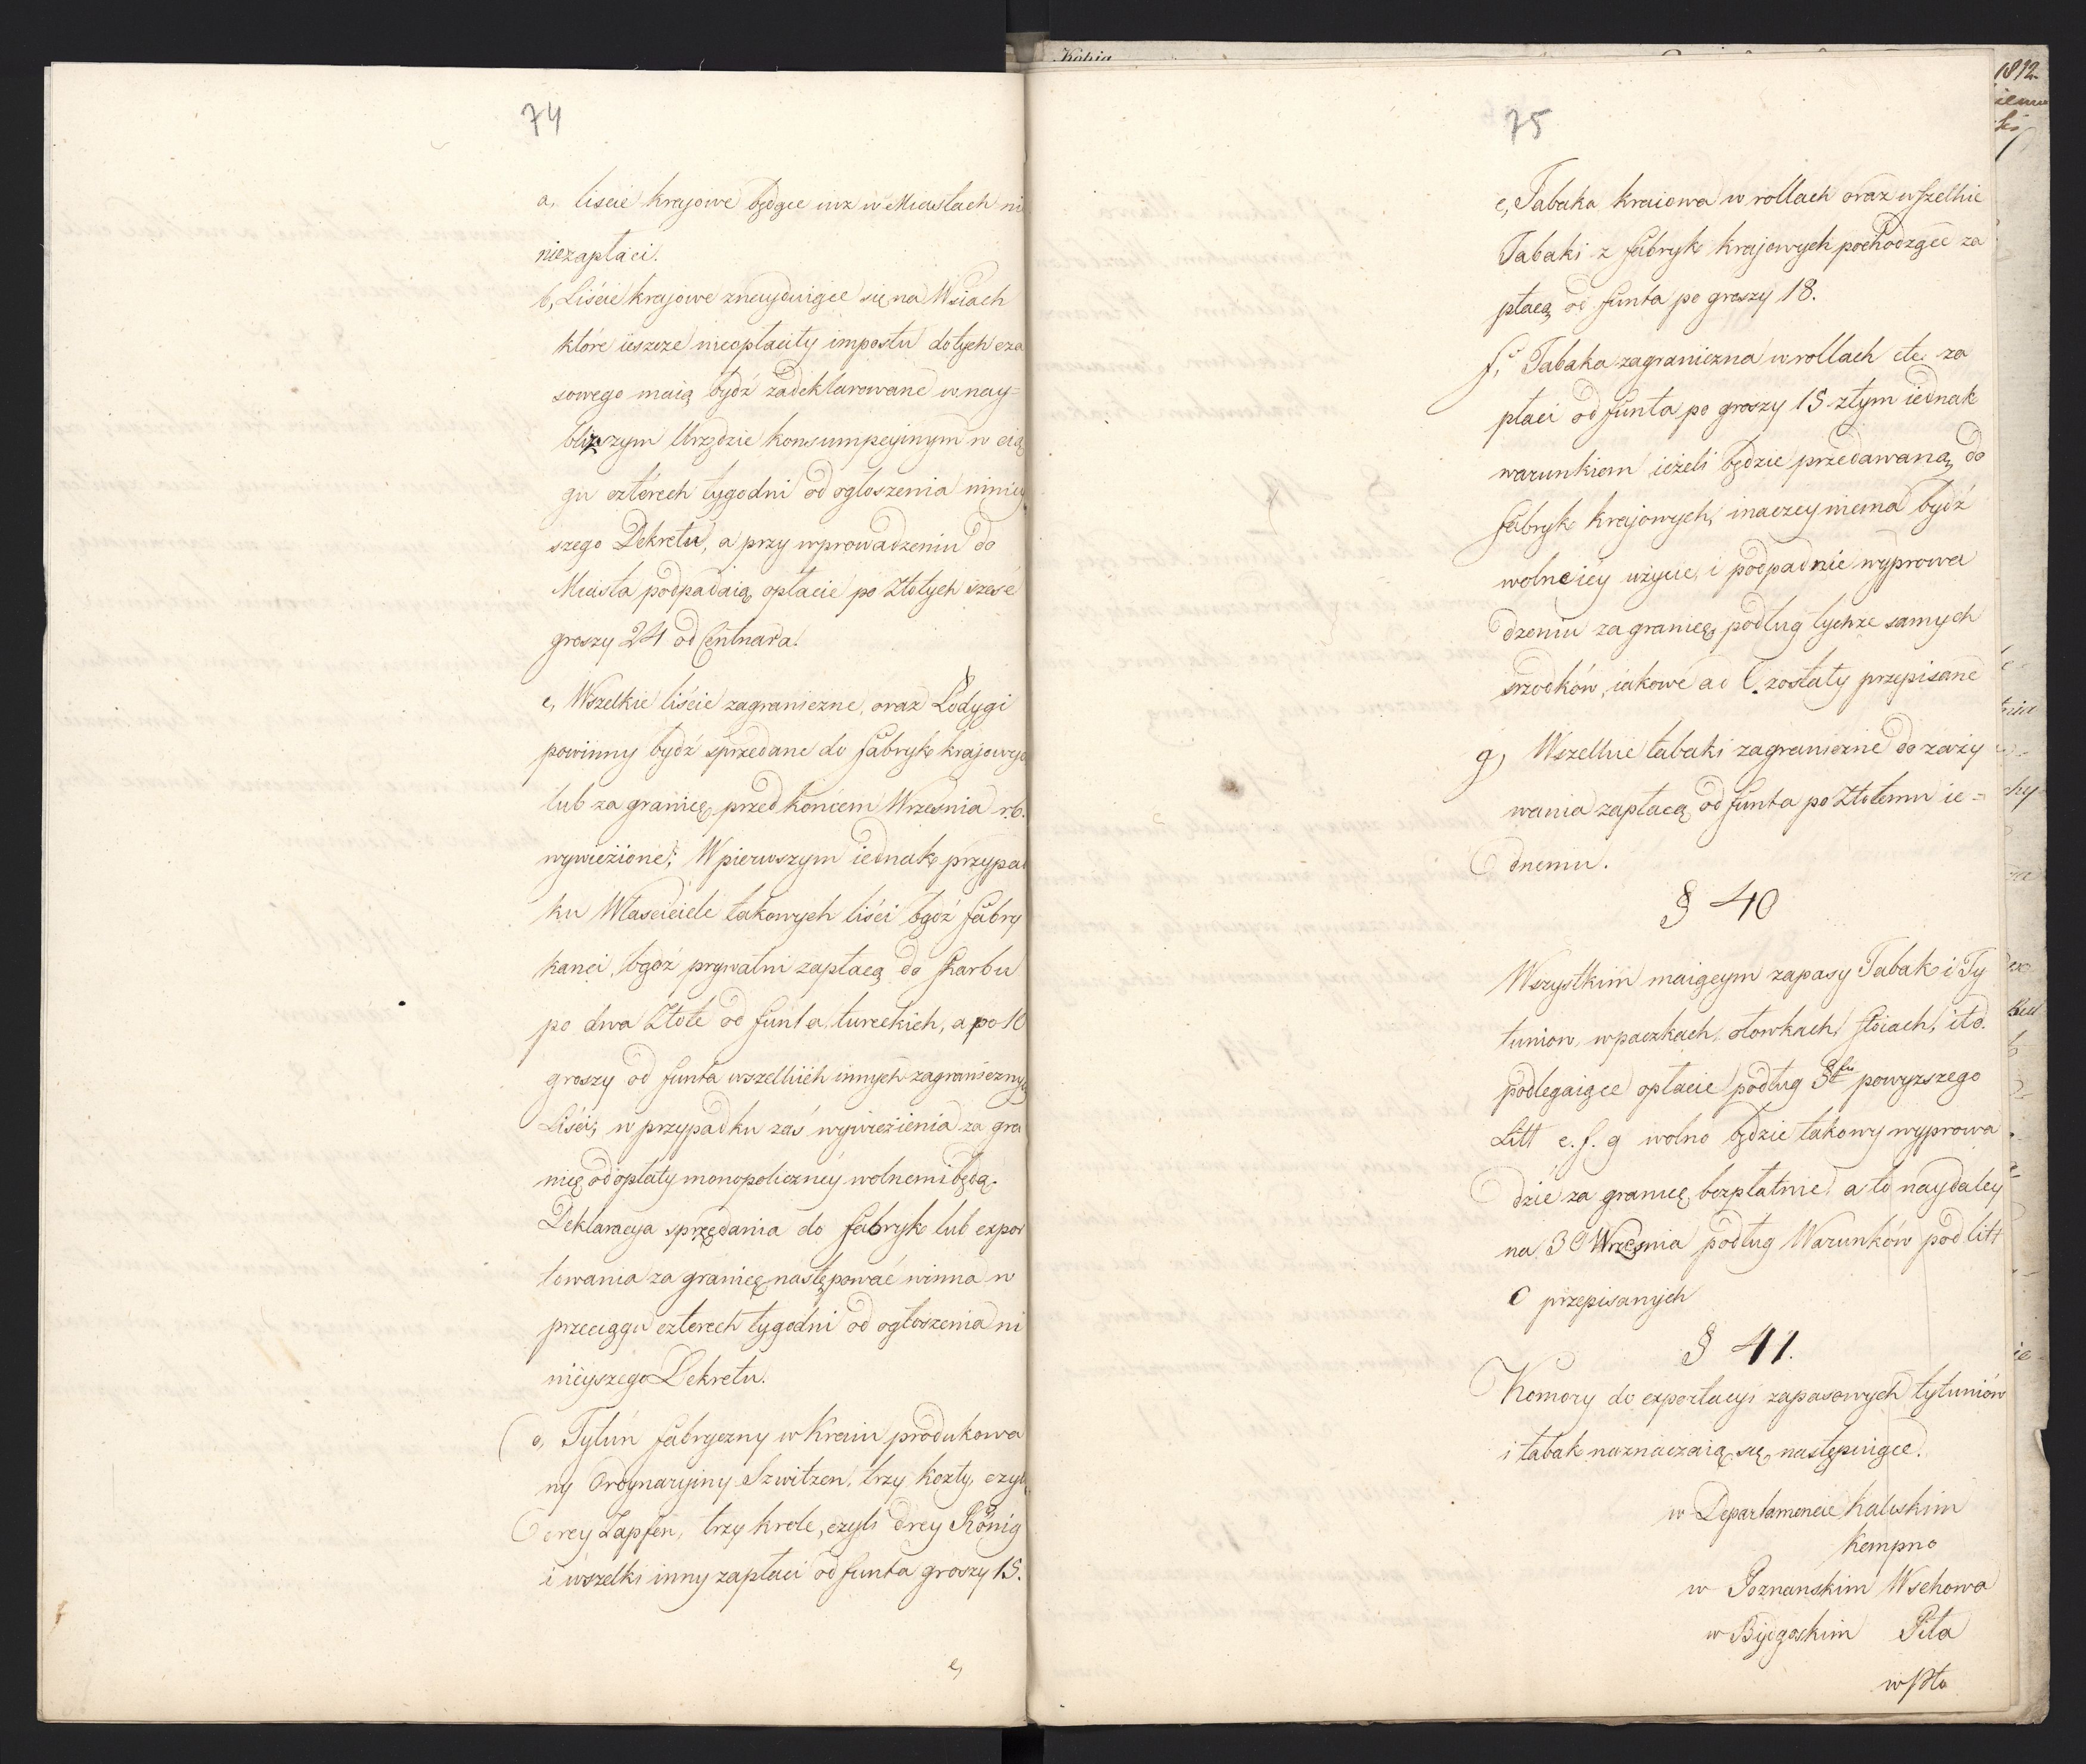 74
a, liście krajowe będące iuż w Miastach ni
niezapłaci.
b, Liście krajowe znayduiące się na Wsiach
które ieszcze nieopłaciły impostu dotych cza
sowego maią bydź zadeklarowane w nay=
bliższym Urzędzie konsumpcyinym w cią
gu czterech tygodni od ogłoszenia niniey
szego Dekretu, a przy wprowadzeniu do
Miasta podpadaią opłacie po Złotych sześć
groszy 24 od Centnara.
c, Wszelkie liście zagraniczne, oraz Łodygi
powinny bydź sprzedane do fabryk krajowych
lub za granicę przed końcem Września r.b.
wywieżione; W pierwszym iednak przypad
ku Własciciele takowych liści bądź fabry
kanci, bądź prywatni zapłacą do skarbu
po dwa Złote od funta tureckich, a po 10
groszy od funta wszelkich innych zagranicznych
Liści; w przypadku zaś wywieżienia za gra
nicę od opłaty monopoliczney wolnemi będą.
Deklaracya sprzedania do fabryk lub expor
towania za granicę następować winna w
przeciągu czterech tygodni od ogłoszenia ni
nieyszego Dekretu.
d, Tytuń fabryczny w Kraiu produkowa
ny Ordynaryiny Szwitzen, trzy Kozły, czyli
drey Zapfen, trzy krole, czyli drey König
i wszelki inny zapłaci od funta groszy 15.
e,
Kopia
75
e, Tabaka kraiowa w rollach oraz wszelkie
Tabaki z fabryk krajowych pochodzące za
płacą od funta po groszy 18.
f, Tabaka zagraniczna w rollach etc. za
płaci od funta po groszy 15 z tym iednak
warunkiem ieżeli będzie przedawaną do
fabryk krajowych, inaczey niema bydź
wolne iéy użycie, i podpadnie wyprowa
dzeniu zagranicę podług tychże samych
srzodków, iakowe ad C. zostały przepisane
g, Wszelkie tabaki zagraniczne do zaży
wania zapłacą od funta po Złotemu ie=
dnemu.
§ 40
Wszystkim maiącym zapasy Tabak i Ty
tuniow, w paczkach, ołowkach, słoiach, itd.
podlegaiące opłacie podług §fu powyzszego
Litt e. f. g wolno będzie takowy wyprowa
dzić za granicę bezpłatnie, a to naydaley
na 30 Września podług Warunków pod litt
C przepisanych
§ 41.
Komory do exportacyi zapasowych tytuniów
i tabak naznaczaią się następuiące.
w Departamencie Kaliskim
Kempno
w Poznanskim Wschowa
w Bydgoskim Piła
w Pło
1812